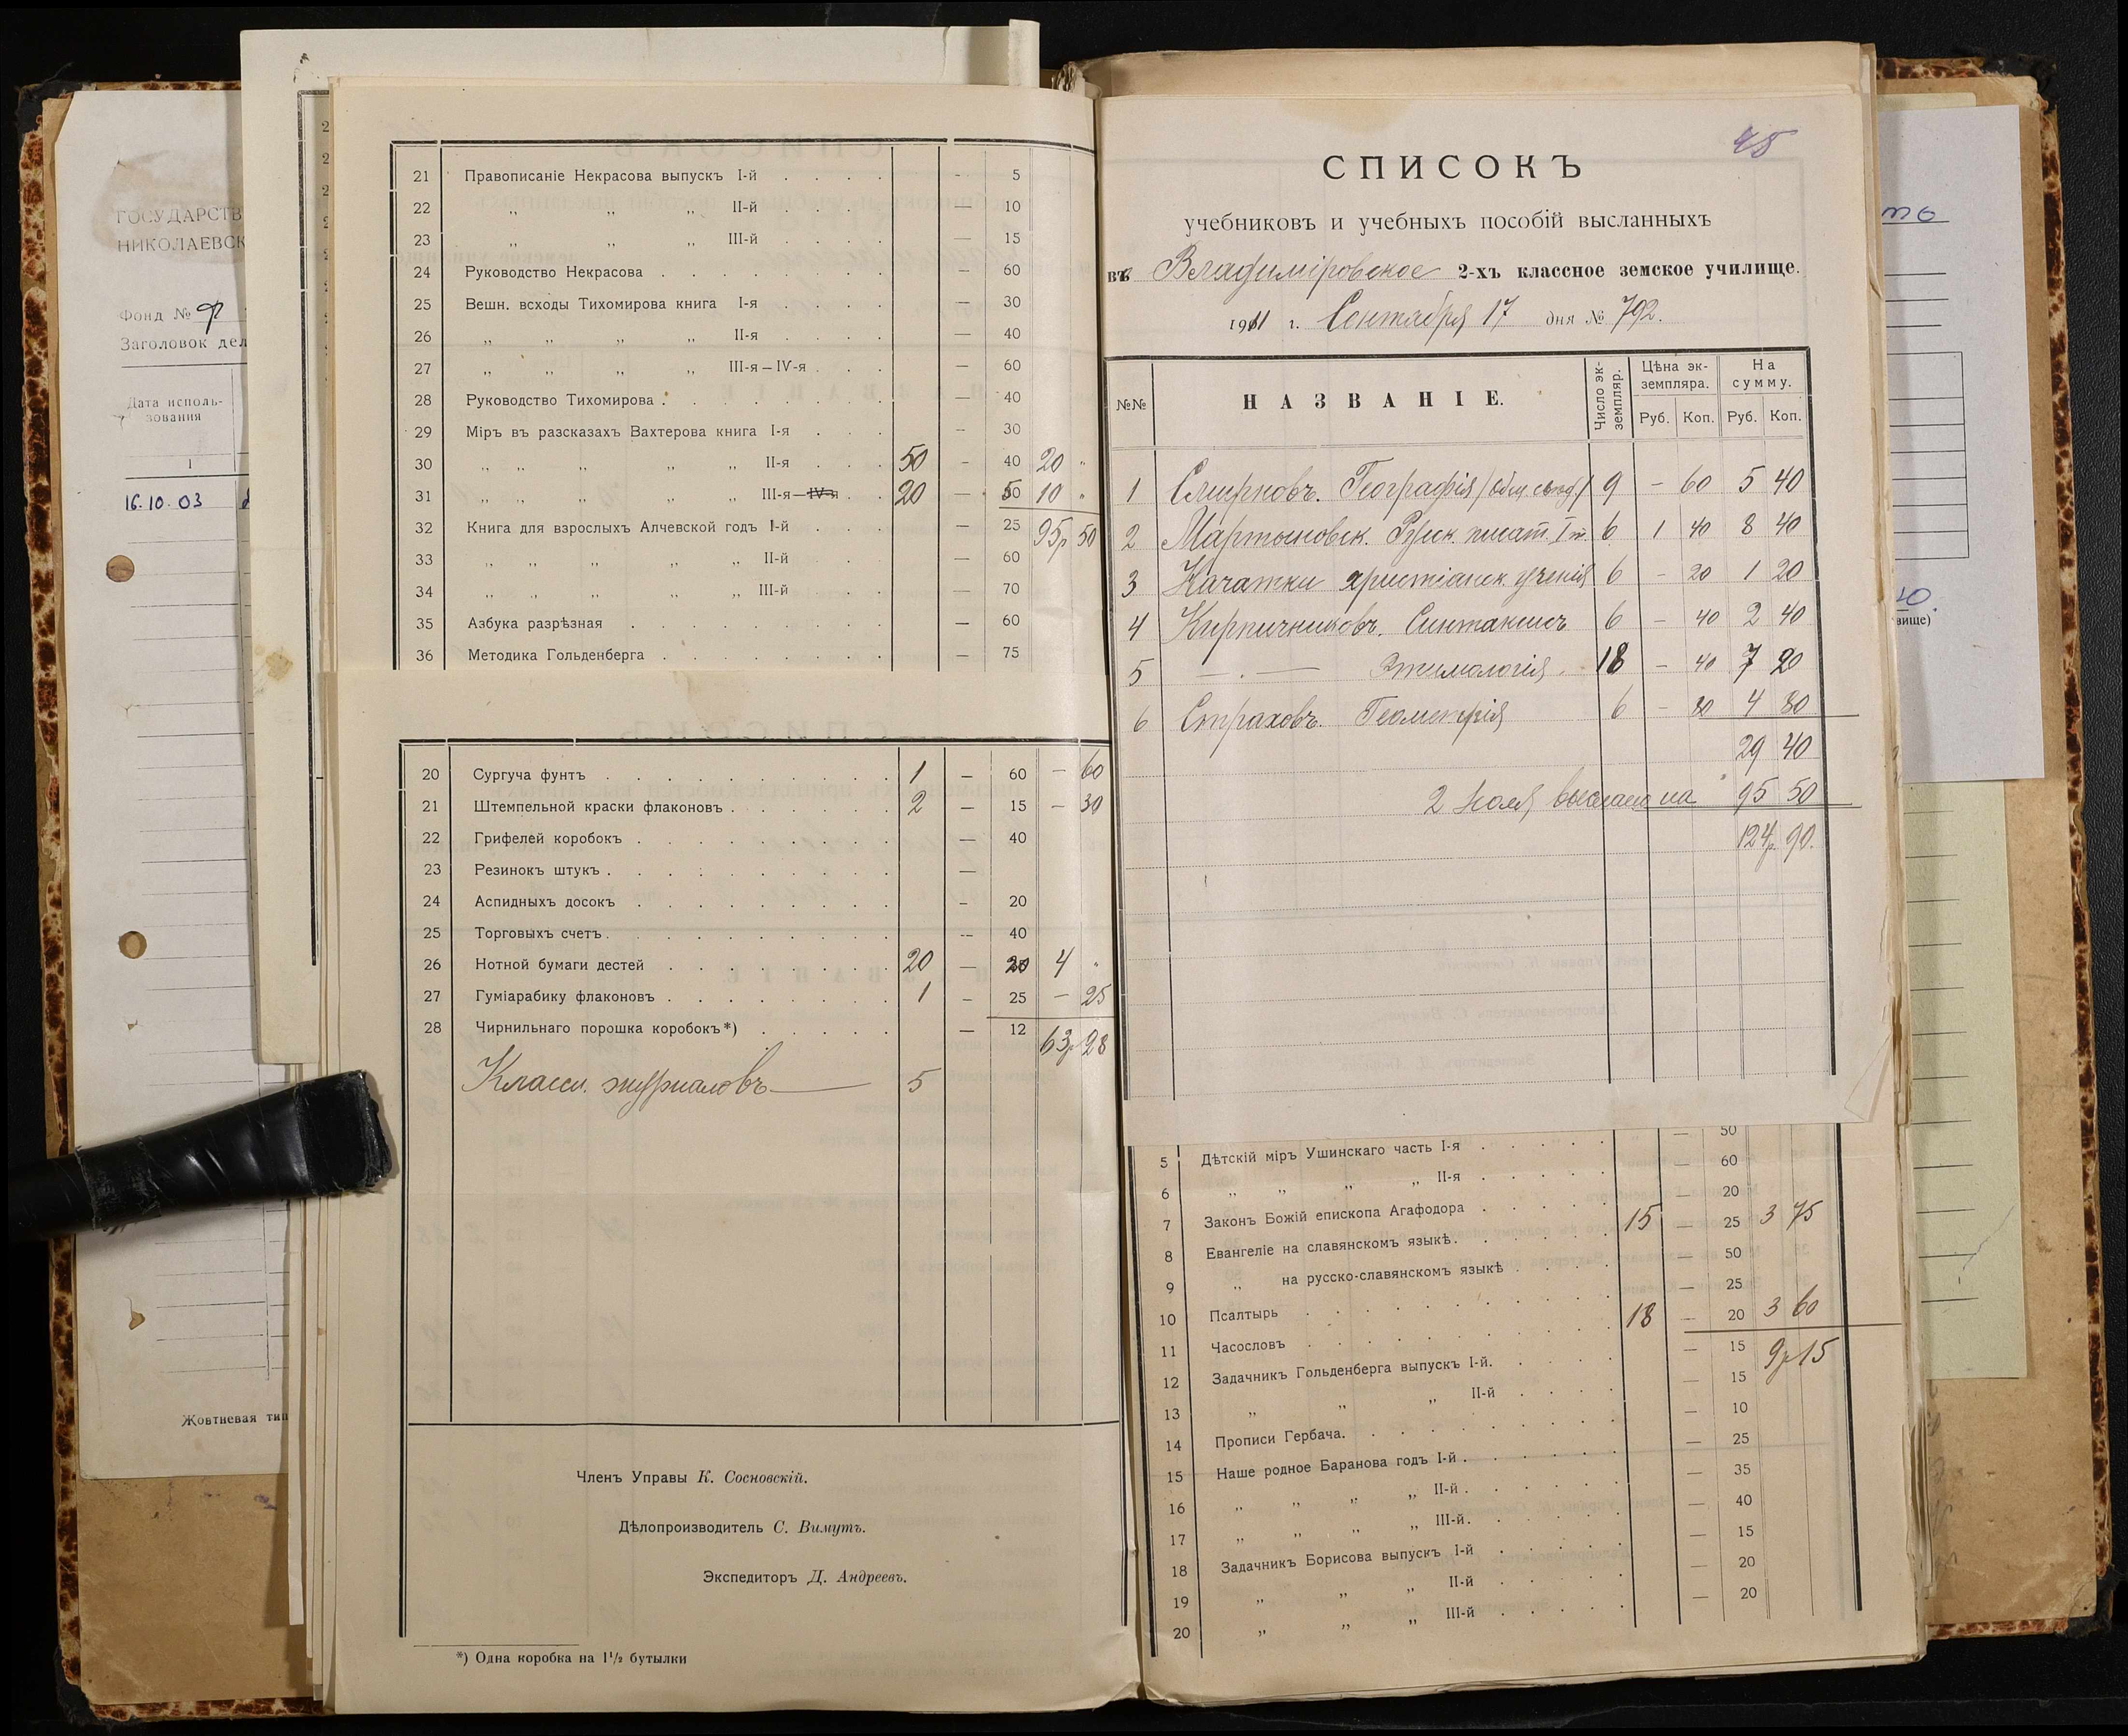 ГОСУДАРСТВ
НИКОЛАЕВСК
Фонд № Ф
Заголовок дел
Дата исполь-
зования
1
16.10.03
Жовтневая тип
21 Правописаніе Некрасова выпускъ I-й — 5
22 „ „ „ II-й — 10
23 „ „ „ III-й — 15
24 Руководство Некрасова — 60
25 Вешн. всходы Тихомирова книга I-я — 30
26 „ „ „ „ II-я — 40
27 „ „ „ „ III-я—IV-я — 60
28 Руководство Тихомирова — 40
29 Міръ въ разсказахъ Вахтерова книга I-я — 30
30 „ „ „ „ „ II-я 50 — 40 20 „
31 „ „ „ „ „ III-я—IV-я 20 — 50 10 „
32 Книга для взрослыхъ Алчевской годъ I-й — 25 95р 50
33 „ „ „ „ „ II-й — 60
34 „ „ „ „ „ III-й — 70
35 Азбука разрѣзная — 60
36 Методика Гольденберга — 75
20 Сургуча фунтъ 1 — 60 — 60
21 Штемпельной краски флаконовъ 2 — 15 — 30
22 Грифелей коробокъ — 40
23 Резинокъ штукъ —
24 Аспидныхъ досокъ — 20
25 Торговыхъ счетъ — 40
26 Нотной бумаги дестей 20 — 20 4 „
27 Гуміарабику флаконовъ 1 — 25 — 25
28 Чирнильнаго порошка коробокъ*) — 12 63р 28
Классн. журналовъ — 5
Членъ Управы К. Сосновскій.
Дѣлопроизводитель С. Вимутъ.
Экспедиторъ Д. Андреевъ.
*) Одна коробка на 1½ бутылки
48
СПИСОКЪ
учебниковъ и учебныхъ пособій высланныхъ
въ Владиміровское 2-хъ классное земское училище.
1911 г. Сентября 17 дня № 792.
№№ НАЗВАНІЕ. Число эк-земпляр. Цѣна эк-земпляра. На сумму.
Руб. Коп. Руб. Коп.
1 Смирновъ. Географія /общ. свѣд./ 9 — 60 5 40
2 Мартыновск. Русск. писат. I т. 6 1 40 8 40
3 Начатки христіанск. ученія 6 — 20 1 20
4 Кирпичниковъ. Синтаксисъ 6 — 40 2 40
5 — „ — Этимологія 18 — 40 7 20
6 Страховъ. Геометрія 6 — 80 4 80
29 40
2 Іюля выслано на 95 50
124р. 90.
50
5 Дѣтскій міръ Ушинскаго часть I-я — 60
6 „ „ „ „ II-я — 20
7 Законъ Божій епископа Агафодора 15 — 25 3 75
8 Евангеліе на славянскомъ языкѣ — 50
9 „ на русско-славянскомъ языкѣ — 25
10 Псалтырь 18 — 20 3 60
11 Часословъ — 15 9р 15
12 Задачникъ Гольденберга выпускъ I-й. — 15
13 „ „ „ II-й — 10
14 Прописи Гербача. — 25
15 Наше родное Баранова годъ I-й — 35
16 „ „ „ „ II-й — 40
17 „ „ „ „ III-й — 15
18 Задачникъ Борисова выпускъ I-й — 20
19 „ „ „ II-й — 20
20 „ „ „ III-й
вище)